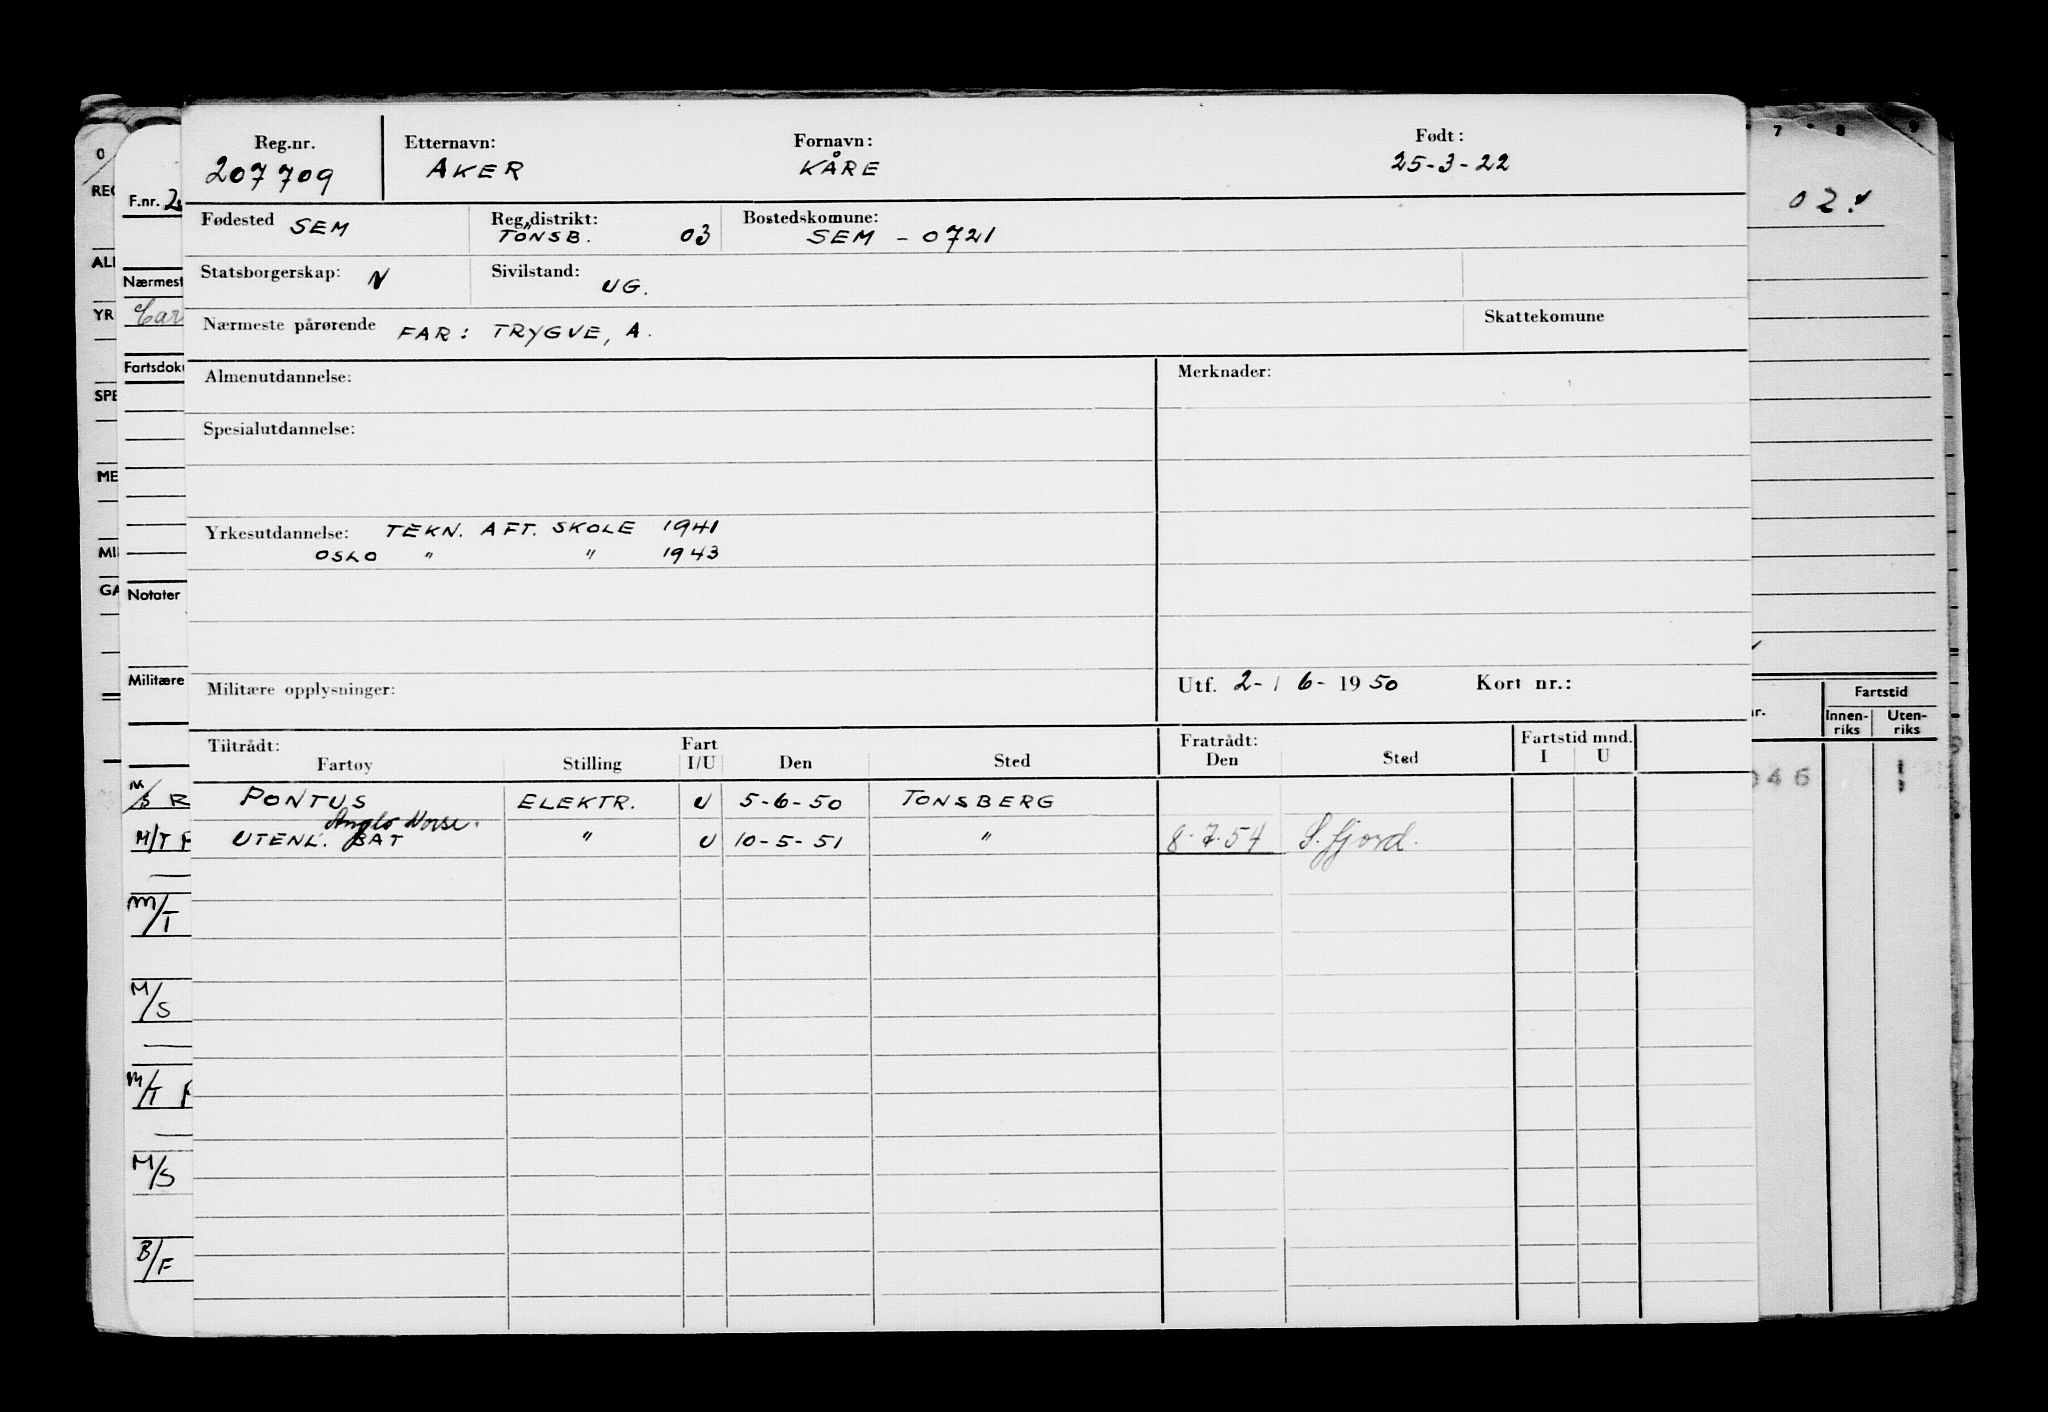 Reg.nr. Etternavn: Fornavn: Født:
207709 AKER KÅRE 25-3-22
Fødested SEM Reg.distrikt: Bostedskomune:
TÖNSB. 03 SEM - 0721
Statsborgerskap: N Sivilstand: UG.
Nærmeste pårørende FAR: TRYGVE, A. Skattekomune
Almenutdannelse: Merknader:
Spesialutdannelse:
Yrkesutdannelse: TEKN. AFT. SKOLE 1941
OSLO " " 1943
Militære opplysninger: Utf. 2- / 6- 1950 Kort nr.:
Tiltrådt: Fart Fratrådt: Fartstid mnd.
Fartøy Stilling I/U Den Sted Den Sted I U
PONTUS ELEKTR. U 5-6-50 TONSBERG
Anglo Norse.
UTENL. BÅT " U 10-5-51 " 8.7.54 S.fjord.
O
REG
F.nr. 2
ALI
Nærmest
YR
Car
Fartsdoku
SPE
ME
MI
GA
Notater
Militære
M/S R
M/T
M/T
M/S
M/T
M/S
B/F
7 8 9
02.
nr. Fartstid
Innen-riks Uten-riks
046